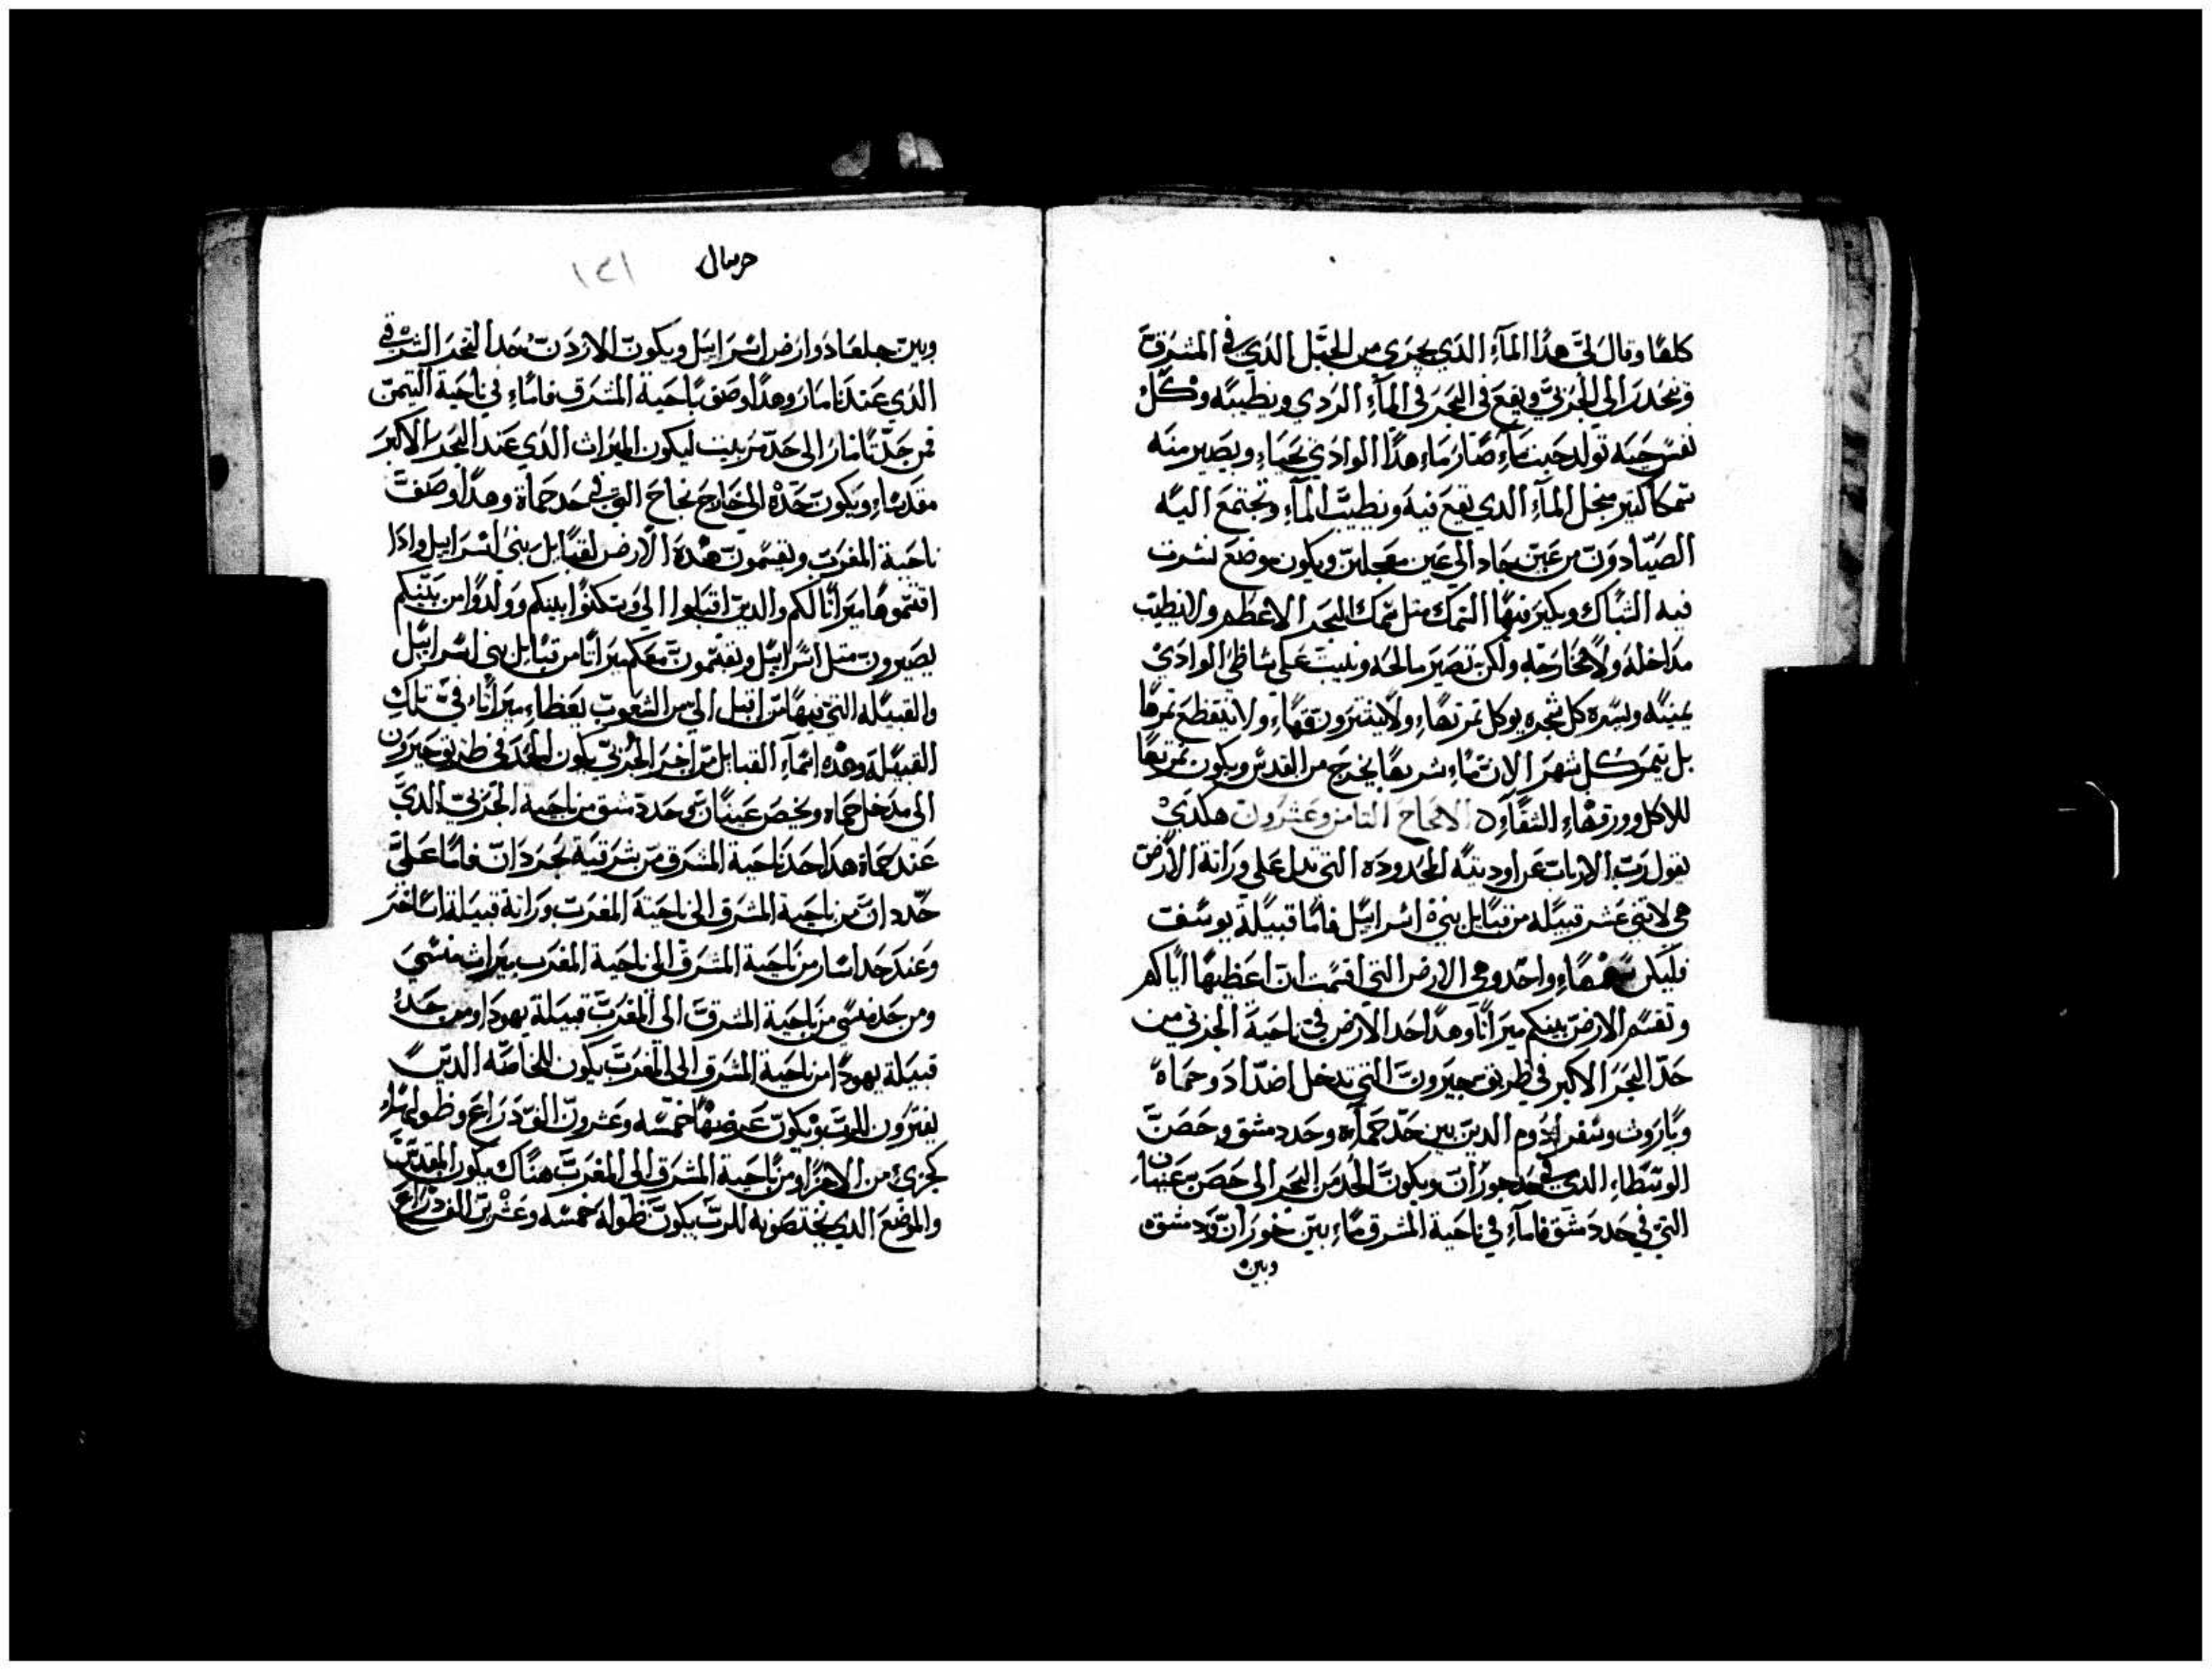 كلها وقال لي هذا المآء الذي يجري من الجبل الذي في المشرق
وينحدر الى الجربي ويقع في البحر في المآء الردي ويطيبه وكل
نفس حيه تولد حيث ماء صار ماء هذا الوادي تحياء ويصير منه
سمكا كتير من جل المآء الدي يقع فيه ويطيب المآء وتجتمع اليه
الصيادون من عين جاد الي عين عجلين ويكون موضع لنشرت
فيه الشباك ويكير فيها السمك متل سمك البحر الاعظم ولا يطيب
مداخله ولا مخارجه ولكن تصير مالحه وينبت على شاطئ الوادي
يمينه ويسره كل شجره يوكل تمرتهاء ولا ينتتر ورقهاء ولا ينقطع تمرها
بل تيمر كل شهر الان ماء شربها يخرج من القدس ويكون تمرتها
للاكل وورقهاء للشفآء الاصحاح التامن وعشرون هكدي
يقول رب الارباب عن اوديته المحدوده التي تدل على وراتة الارض
هي لاتني عشر قبيله من قبايل بني اسراييل فاما قبيلة يوسف
فليكن سهماء واحد وهي الارض التي اقسمت ان اعطيها اباكم
وتقسم الارض بينكم ميراثا وهذا حد الارض في ناحية الجربي من
حد البحر الاكبر في طريق حبرون التي تدخل اضداد وحماة
وباروت وسفر ادوم الدين بين حد حمآءه وحد دمشق وحصن
الوسطاء الدي في حد حوران ويكون الحد من البحر الى حصن عنبان
التي في حد دمشق فامآء في ناحية المشرق ماء بين حوران ودمشق
وبين
حرقيال ١٢١
وبين جلعاد وارض اسراييل ويكون الاردن حد البحر الشرقي
الذي عند تامار وهذا وصف ناحية المشرق فاماء في ناحية التيمن
فمن حد تامار الى حد مريبت ليكون الميرات الدي عند البحر الاكبر
مقدساء ويكون حده الى خارج نجاح التي في حد حماة وهدا وصفت
ناحية المغرب وتقسمون هذه الارض لقبايل بني اسراييل وادا
اقتسموها ميراثا لكم والدين اقبلوا الي وسكنوا بينكم وولدوا من بينكم
يصيرون متل اسراييل ويقتسمون معكم ميراثا من قبايل بني اسراييل
والقبيله التي فيها من اقبل الي من الشعوب يعطاء ميراثاء في تلك
القبيله وهذه اسمآء القبايل من اخر الجربي يكون الحد في طريق حبرون
الى مدخل حماه وبحصن عينان وحد دمشق من ناحية الجربي الدي
عند حماة هدا حد ناحية المشرق من شرقية حد دان فاما على
حد دان من ناحية المشرق الى ناحية المغرب وراتة قبيلة اساخر
وعند حد اسار من ناحية المشرق الى ناحية المغرب ميرات منسي
ومن حد منسي من ناحية المشرق الى المغرب قبيلة يهودا ومن حد
قبيلة يهودا من ناحية المشرق الى المغرب يكون للخاصه الدين
يفترون للرب ويكون عرضها خمسه وعشرون الف دراع وطولها
كجزئ من الاجزا ومن ناحية المشرق الى المغرب هناك يكون المقدس
والموضع الدي يختصونه للرب يكون طوله خمسه وعشرين الف دراع